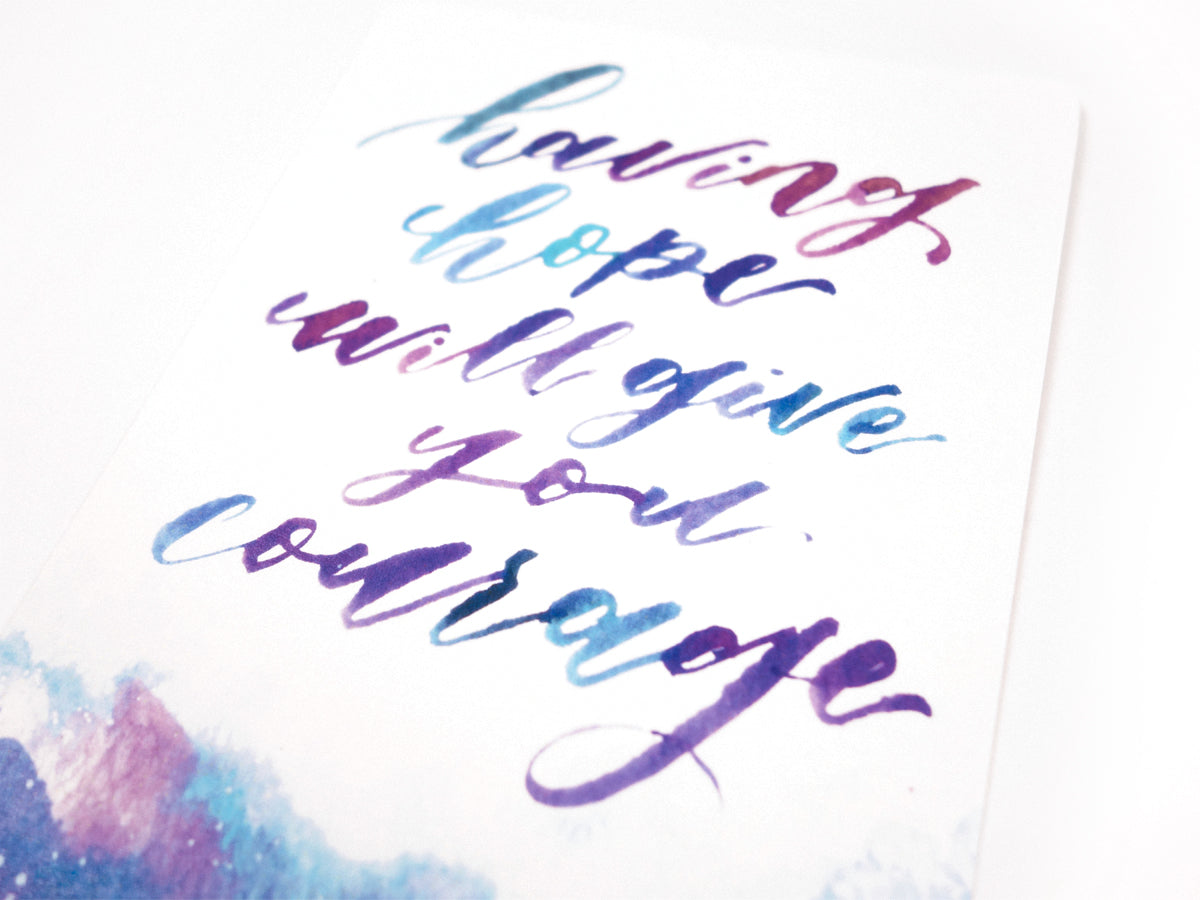 having
hope
will give
you
courage